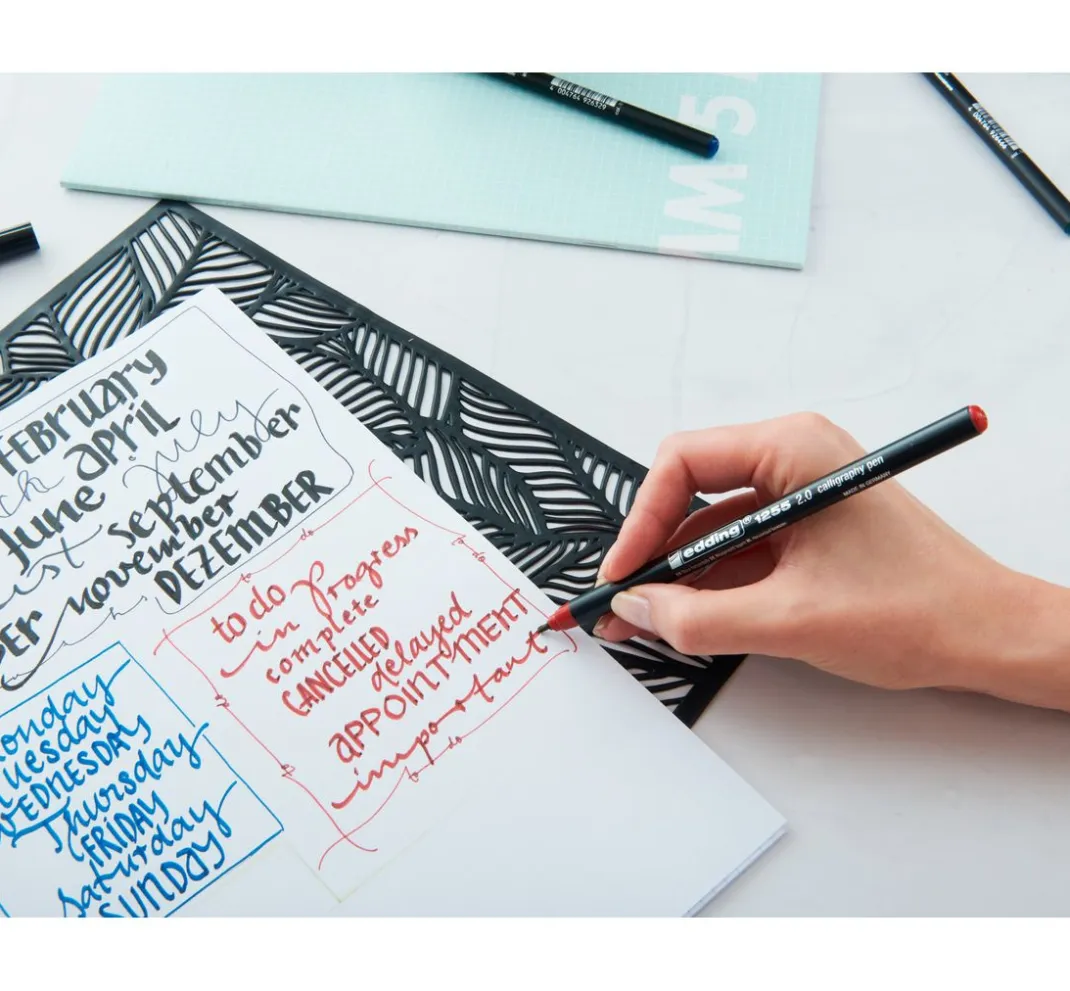 4 004764 926329
M 5
FEBRUARY
april
June
july
september
november
DEZEMBER
to do
in progress
complete
CANCELLED
delayed
APPOINTMENT
important
onday
Tuesday
WEDNESDAY
Thursday
FRIDAY
Saturday
SUNDAY
edding® 1255 2.0 calligraphy pen
MADE IN GERMANY